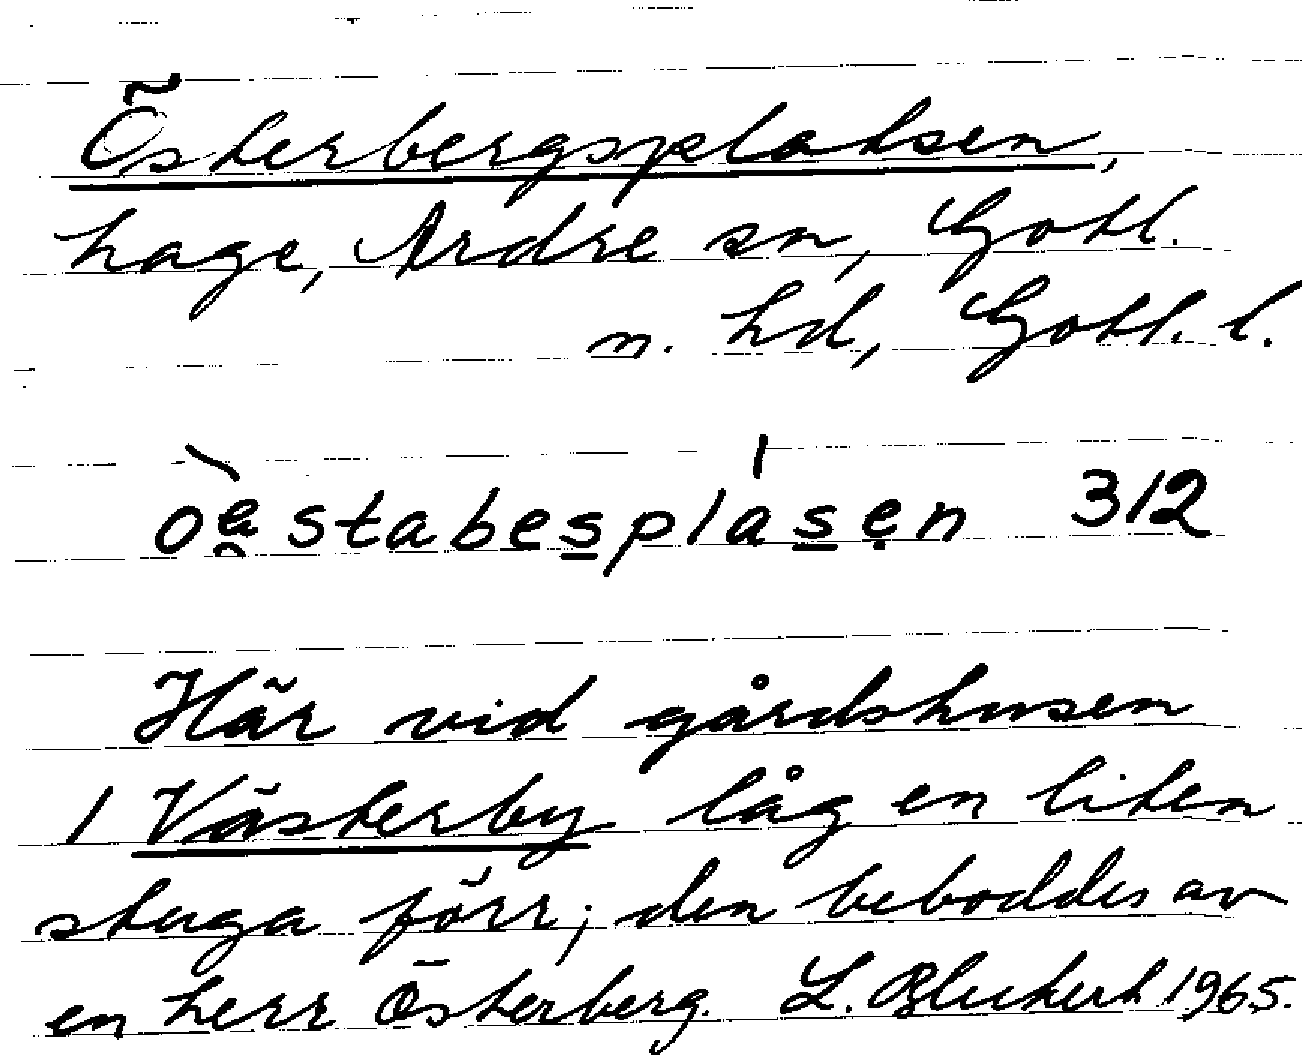 Österbergsplatsen,
hage, Ardre sn, Gotl.
n. hd, Gotl. l.
312
Här vid gårdshusen
i Västerby låg en liten
stuga förr; den beboddes av
en herr Österberg. L. Bluckert 1965.